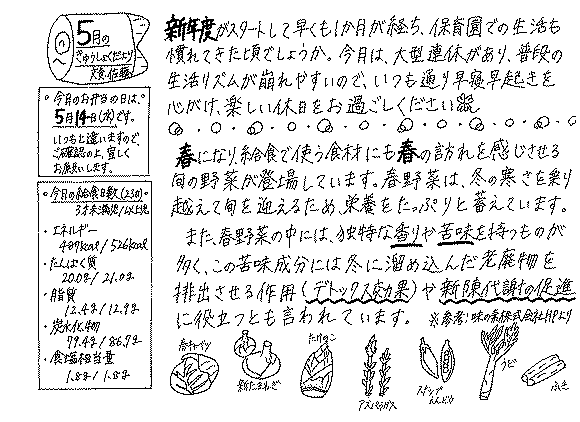 5月の
きゅうしょくだより
文責 佐藤
・今月のお弁当の日は、
5月14日(水)です。
いつもと違いますので、
ご確認の上、宜しく
お願いします。
・今月の給食日数(23回)
3才未満児/以上児
・エネルギー
489kcal/526kcal
・たんぱく質
20.0g/21.0g
・脂質
12.4g/12.9g
・炭水化物
79.4g/86.9g
・食塩相当量
1.8g/1.8g
新年度がスタートして早くも1か月が経ち、保育園での生活も
慣れてきた頃でしょうか。今月は、大型連休があり、普段の
生活リズムが崩れやすいので、いつも通り早寝早起きを
心がけ、楽しい休日をお過ごしください
春になり、給食で使う食材にも春の訪れを感じさせる
旬の野菜が登場しています。春野菜は、冬の寒さを乗り
越えて旬を迎えるため、栄養をたっぷりと蓄えています。
また、春野菜の中には、独特な香りや苦味を持つものが
多く、この苦味成分には冬に溜め込んだ老廃物を
排出させる作用(デトックス効果)や新陳代謝の促進
に役立つとも言われています。 ※参考:味の素株式会社HPより
春キャベツ
新たまねぎ
たけのこ
アスパラガス
スナップえんどう
うど
ふき